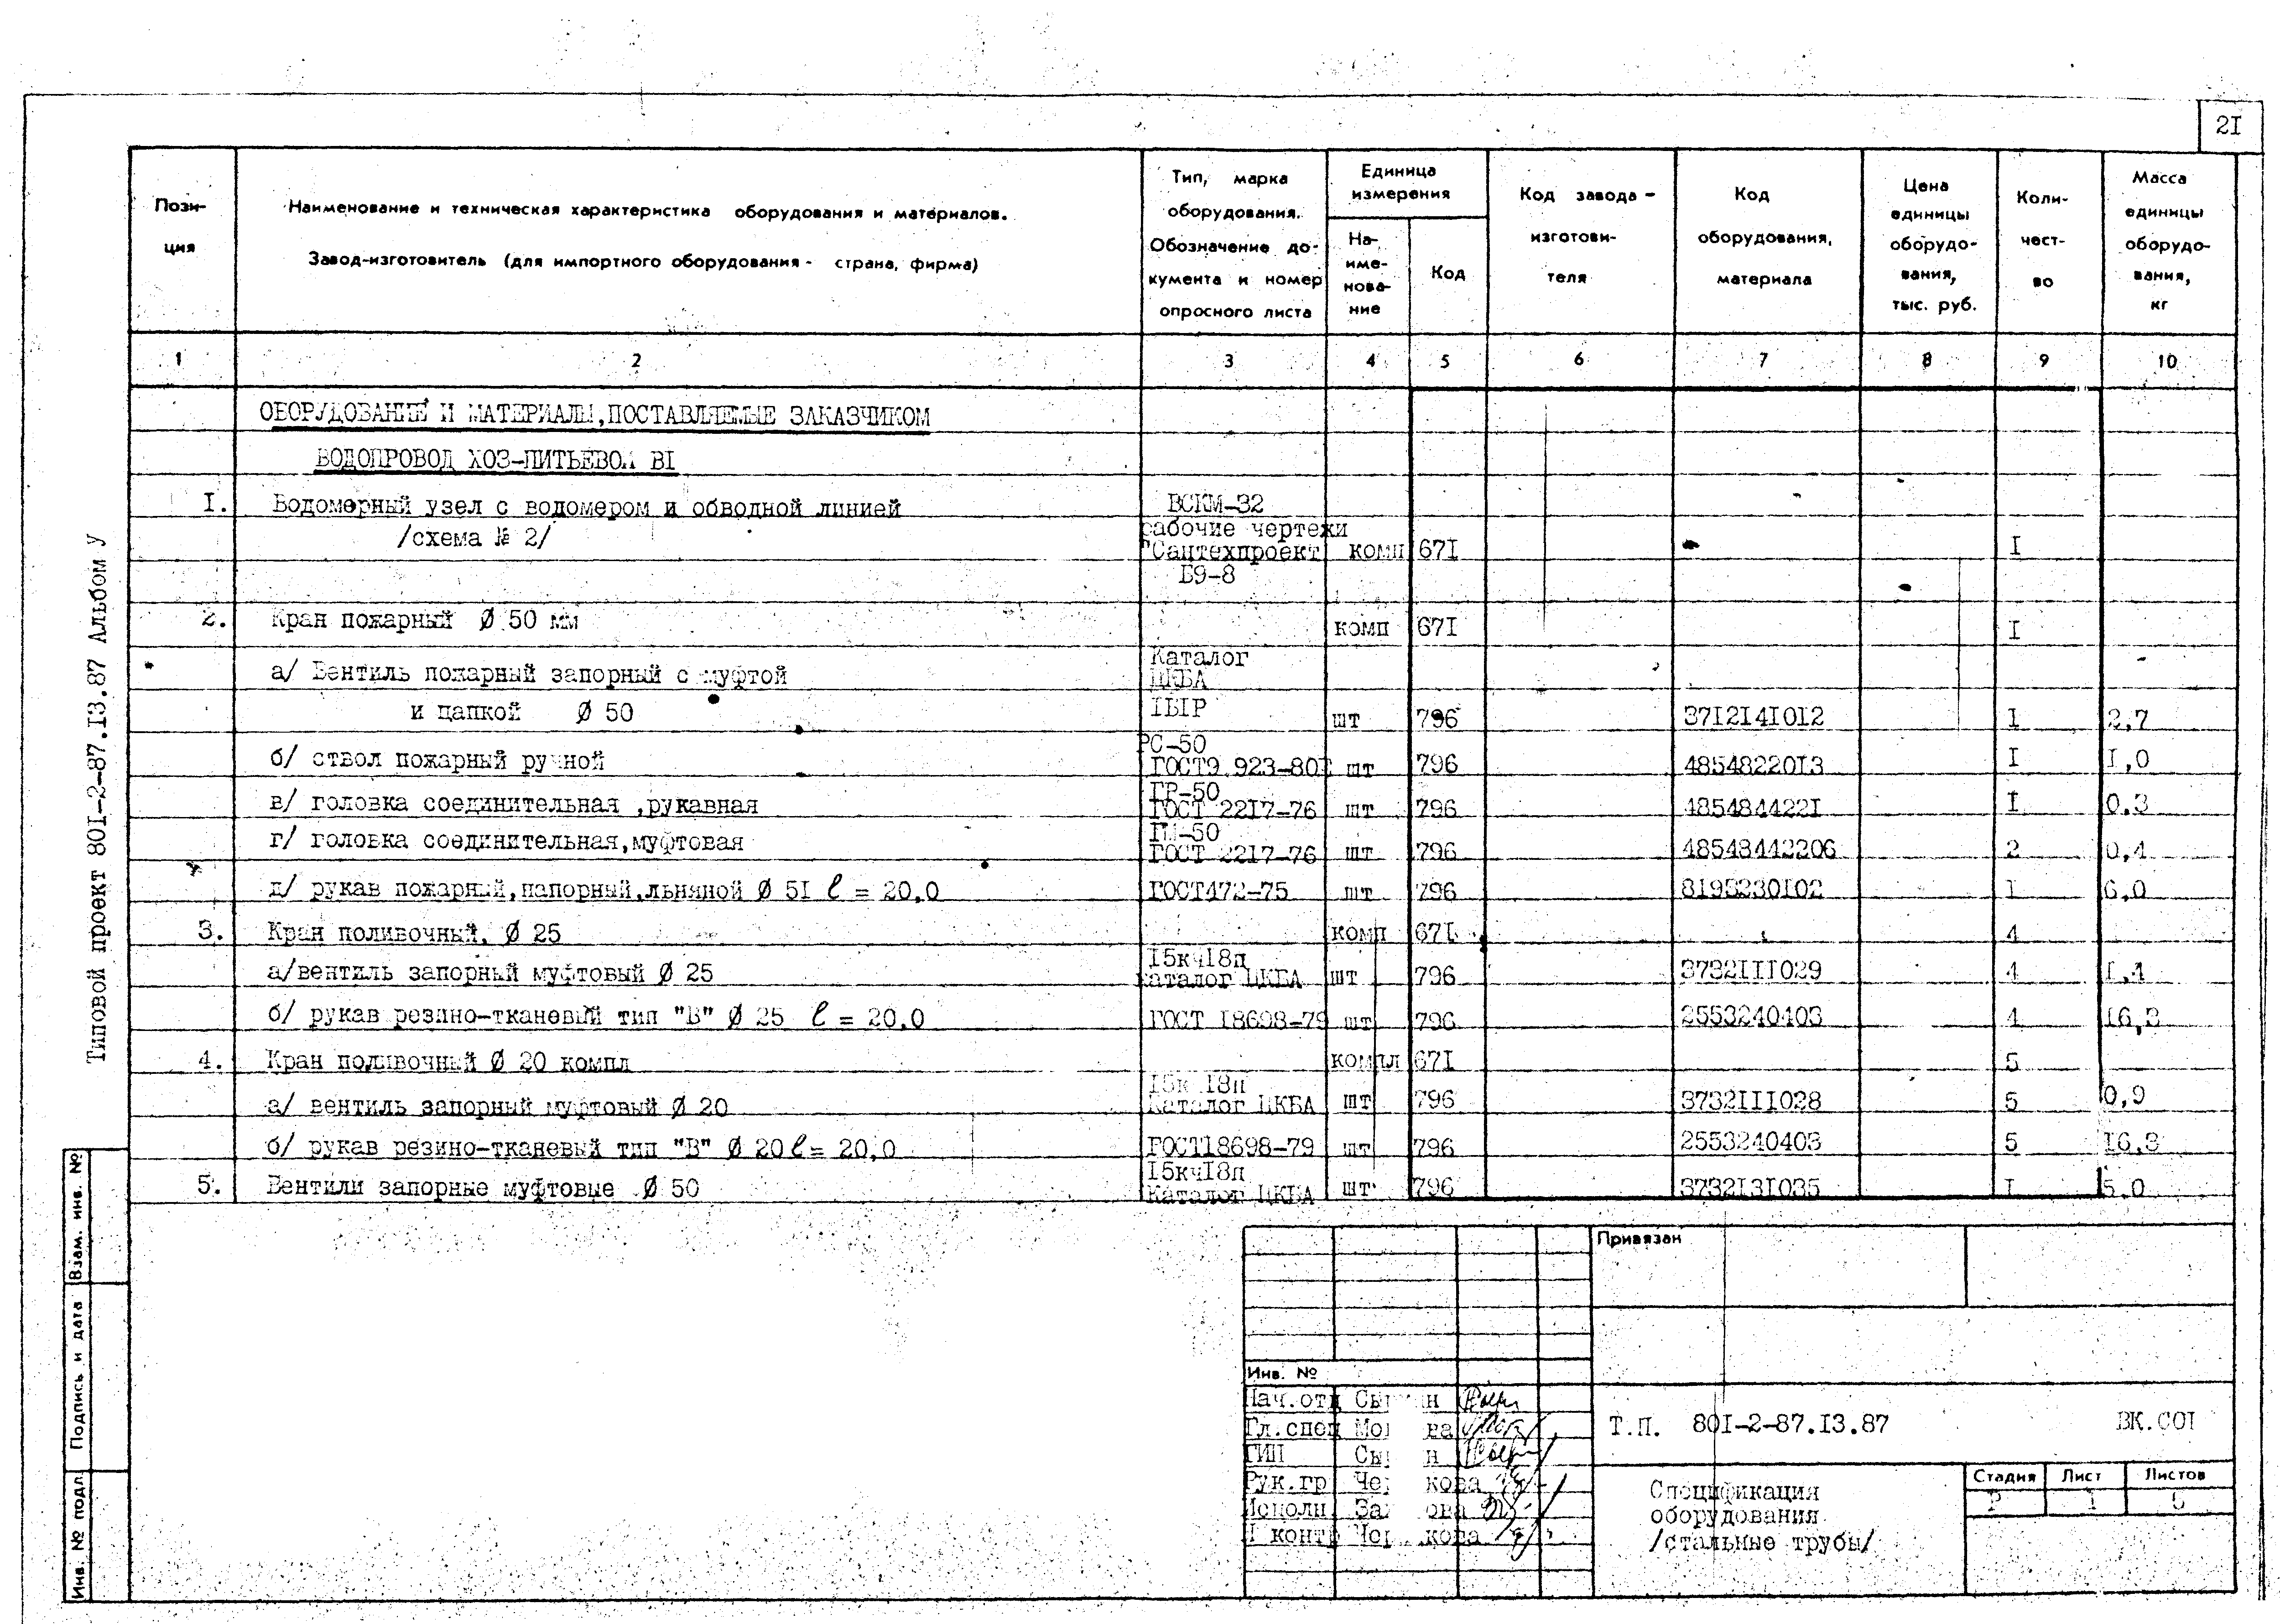 21
Пози-
ция
Наименование и техническая характеристика оборудования и материалов.
Завод-изготовитель (для импортного оборудования - страна, фирма)
Тип, марка
оборудования.
Обозначение до-
кумента и номер
опросного листа
Единица
измерения
На-
име-
нова-
ние
Код
Код завода-
изготови-
теля
Код
оборудования,
материала
Цена
единицы
оборудо-
вания,
тыс. руб.
Коли-
чест-
во
Масса
единицы
оборудо-
вания,
кг
1 2 3 4 5 6 7 8 9 10
ОБОРУДОВАНИЕ И МАТЕРИАЛЫ, ПОСТАВЛЯЕМЫЕ ЗАКАЗЧИКОМ
ВОДОПРОВОД ХОЗ-ПИТЬЕВОЙ В1
1. Водомерный узел с водомером и обводной линией ВСКМ-32
/схема № 2/ рабочие чертежи
"Сантехпроект комп 671 1
Б9-8
2. Кран пожарный Ø 50 мм комп 671 1
а/ Вентиль пожарный запорный с муфтой Каталог
ЦКБА
и цапкой Ø 50 1Б1Р шт 796 3712141012 1 2,7
РС-50
б/ ствол пожарный ручной ГОСТ9 923-80 шт 796 4854822013 1 1,0
ГР-50
в/ головка соединительная ,рукавная ГОСТ 2217-76 шт 796 4854844221 1 0,3
ГМ-50
г/ головка соединительная,муфтовая ГОСТ 2217-76 шт 796 48548442206 2 0,4
д/ рукав пожарный,напорный,льняной Ø 51 l = 20,0 ГОСТ472-75 шт 796 8193230102 1 6,0
3. Кран поливочный, Ø 25 комп 671 4
15кч18п
а/вентиль запорный муфтовый Ø 25 каталог ЦКБА шт 796 3732111029 4 1,4
б/ рукав резино-тканевый тип "В" Ø 25 l = 20,0 ГОСТ 18698-79 шт 796 2553240403 4 16,3
4. Кран поливочный Ø 20 компл компл 671 5
15к 18п
а/ вентиль запорный муфтовый Ø 20 Каталог ЦКБА шт 796 3732111028 5 0,9
б/ рукав резино-тканевый тип "В" Ø 20 l = 20,0 ГОСТ18698-79 шт 796 2553240403 5 16,3
15кч18п
5. Вентили запорные муфтовые Ø 50 Каталог ЦКБА шт 796 3732131035 1 5,0
Типовой проект 801-2-87.13.87 Альбом У
Взам. инв. №
Подпись и дата
Инв. № подл
Привязан
Инв. №
Нач.отд
Гл.спец
ГИП
Рук.гр
Исполн
Н контр
Т.П. 801-2-87.13.87 ВК.СО1
Спецификация
оборудования
/стальные трубы/
Стадия Лист Листов
Р 1 5